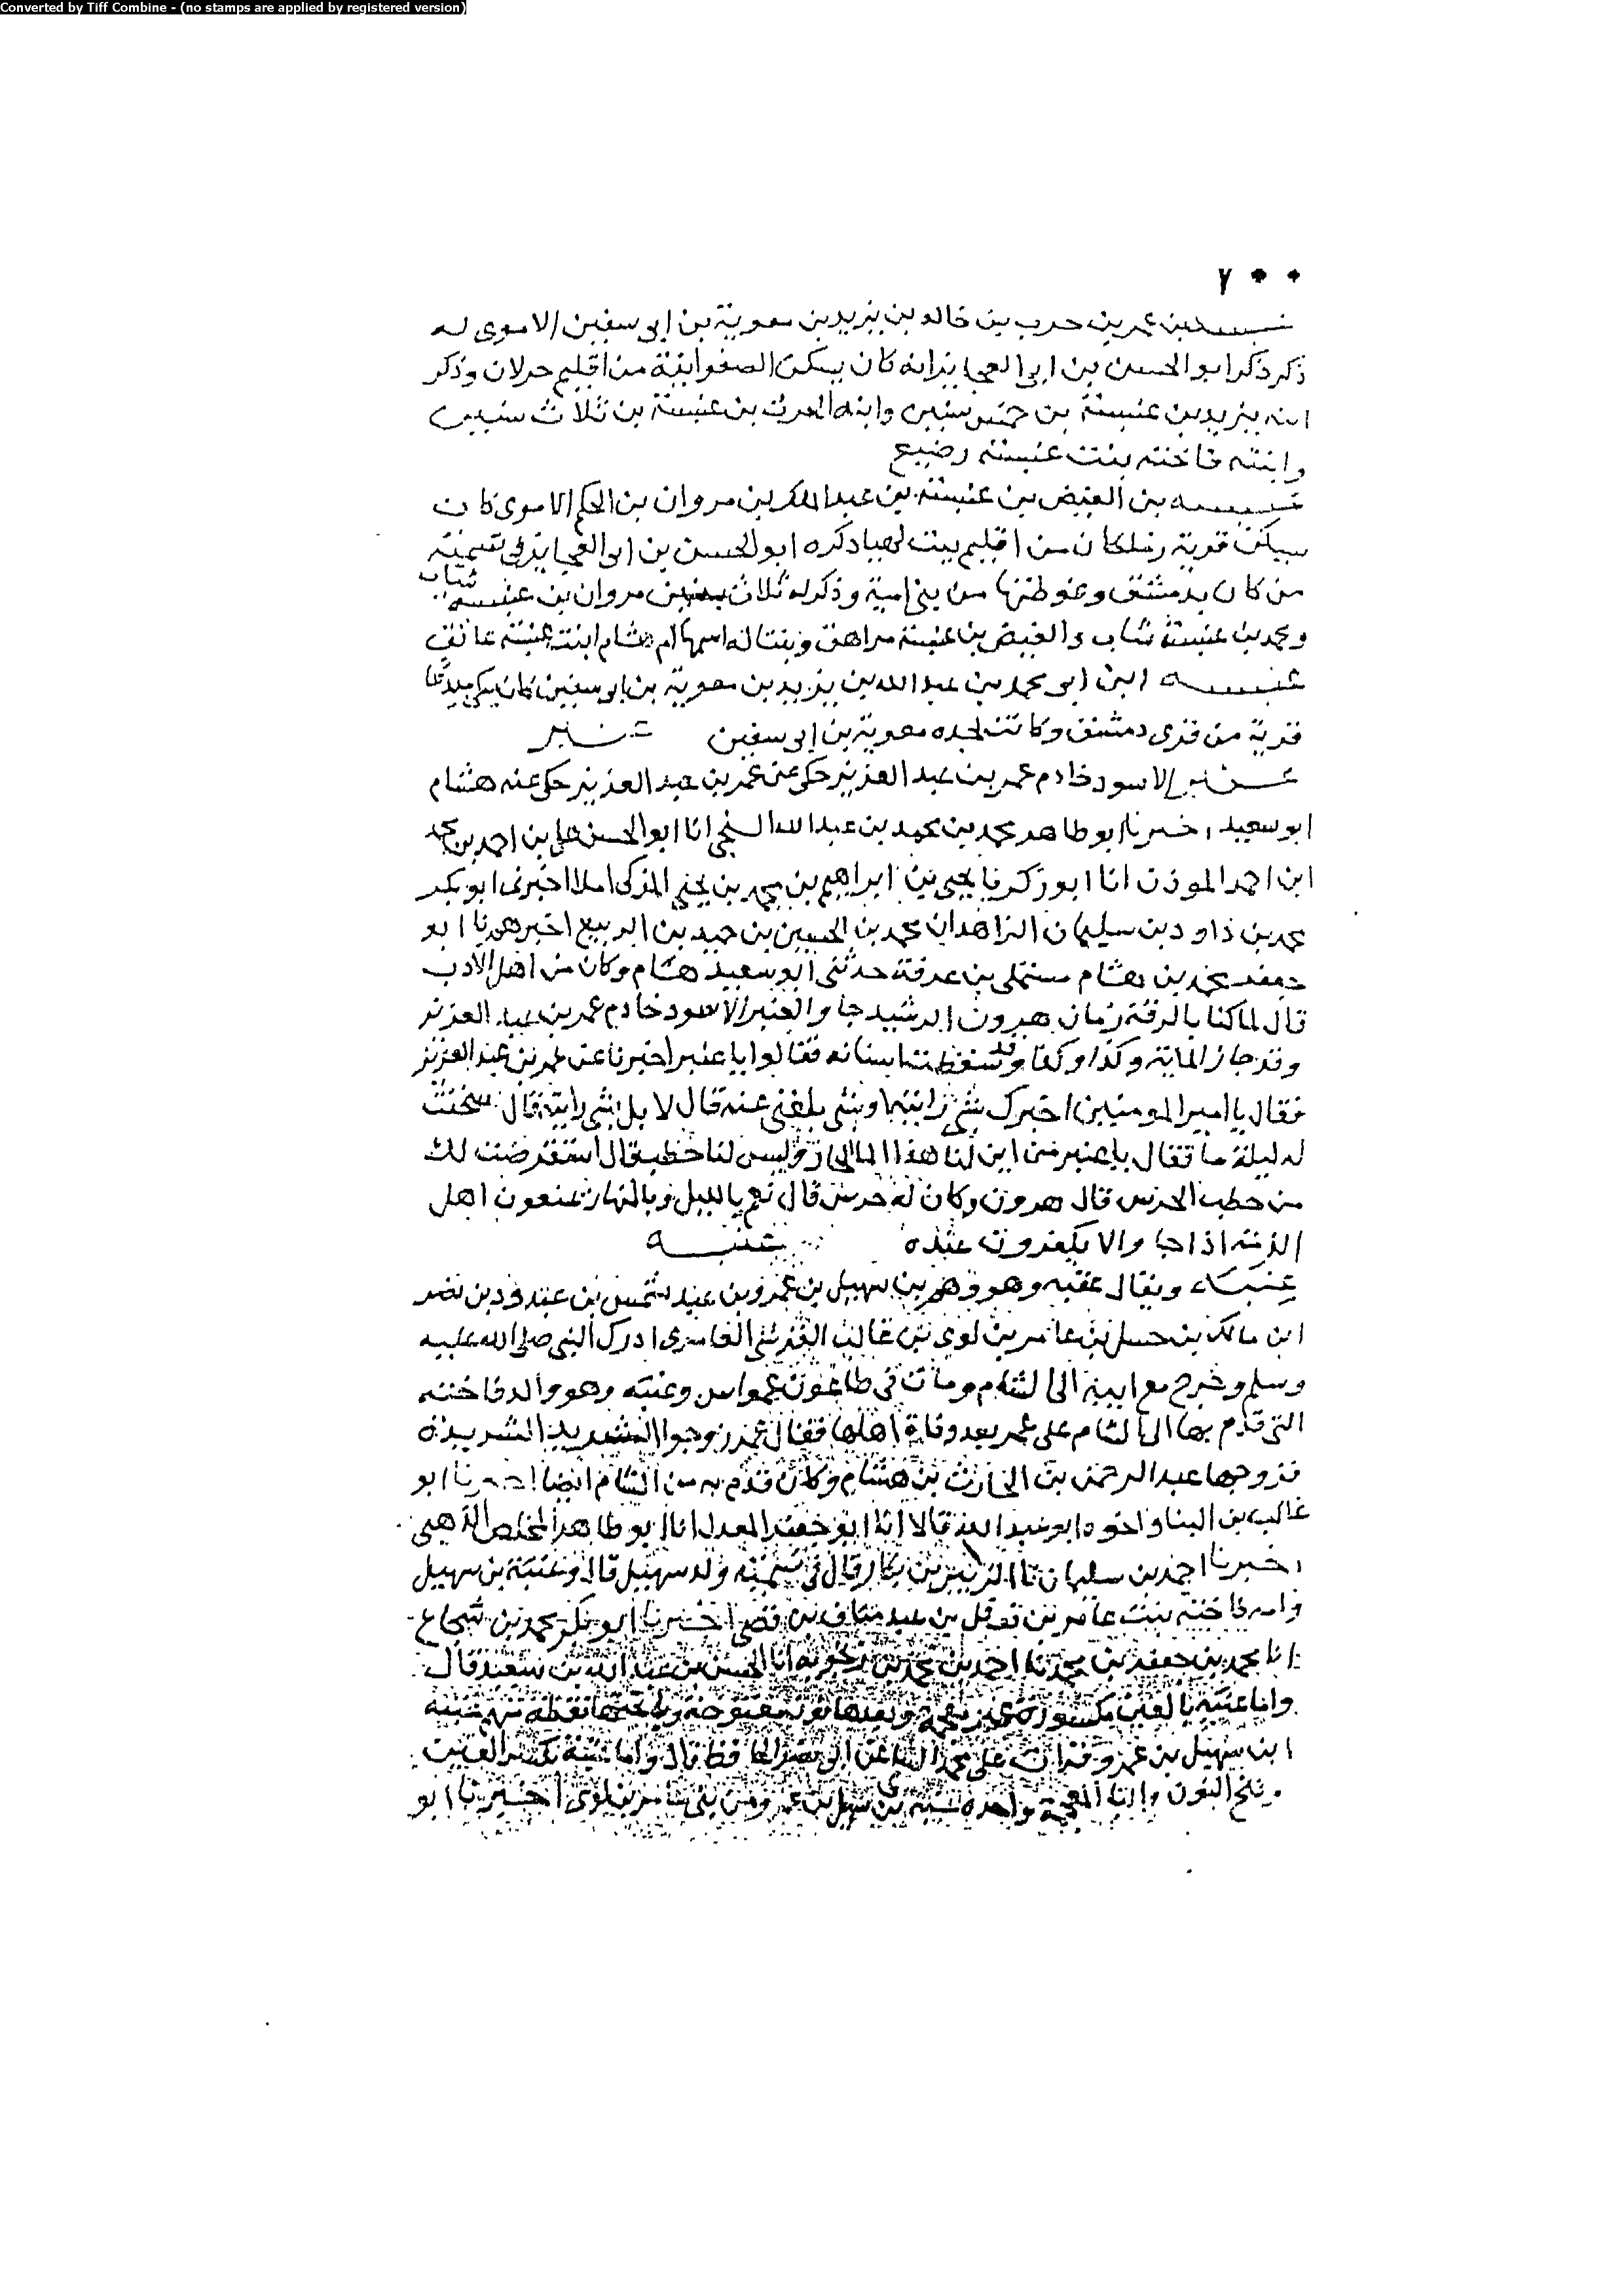 Converted by Tiff Combine - (no stamps are applied by registered version)
٧٠٠
بن عمر بن حرب بن خالد بن يزيد بن معوية بن ابى سفين الاموى له
ذكر ذكر ابو الحسن بن ابى العجايز انه كان يسكن الصفوانية من اقليم حرلان وذكر
ابنه يزيد بن عنبسة بن خمس سنين وابنه الحرث بن عنبسة بن ثلاث سنين
وابنته فاخته بنت عنبسه رضيع
عنبسه بن الفيض بن عنبسة بن عبد الملك بن مروان بن الحكم الاموى كان
سيكن قرية زملكان من اقليم بيت لهيا ذكره ابو الحسن بن ابى العجايز فى تسمية
من كان بدمشق وغوطتها من بنى امية وذكر له ثلاث بنين مروان بن عنبسه شاب
ومحمد بن عنبسة شاب والفيض بن عنبسة مراهق وبنتا له اسمها ام هشام ابنت عنبسة عاتق
عنبسه ابن ابى محمد بن عبد الله بن يزيد بن معوية بن ابى سفين كان يكن
قرية من قرى دمشق وكانت لجده معوية بن ابى سفين عنبر
عنبر الاسود خادم عمر بن عبد العزيز حكى عن عمر بن عبد العزيز حكى عنه هشام
ابو سعيد اخبرنا ابو طاهر محمد بن محمد بن عبد الله السنجى انا ابو الحسن على بن احمد بن محمد
ابن احمد الموذن انا ابو زكريا يحيى بن ابراهيم بن محمد بن يحيى المزكى املا اخبرنى ابو بكر
محمد بن داود بن سليمان الزاهد ان محمد بن الحسين بن حميد بن الربيع اخبرهم نا ابو
جعفر محمد بن هشام مستملى بن عرفة حدثنى ابو سعيد هشام وكان من اهل الادب
قال لما كنا بالرقة زمان هرون الرشيد جاوا لعنبر الاسود خادم عمر بن عبد العزيز
وقد جاز الماية وكذا وكذا وقد سقطت اسنانه فقالوا يا عنبر اخبرنا عن عمر بن عبد العزيز
فقال يا امير المومنين اخبرك بشى رايتها وبشى بلغنى عنه قال لا بل بشى رايته قال سخنت
له ليلة ما فقال يا عنبر من اين لنا هذا الما وليس لنا حطب قال استقرضت لك
من حطب الحرس قال هرون وكان له حرس قال نعم بالليل وبالنهار يمنعون اهل
الذمة اذا جاوا الا يكفرون عنده عنبه
عنبه ويقال عقبه وهو وهم بن سهيل بن عمرو بن عبد شمس بن عبد ود بن نصر
ابن مالك بن حسل بن عامر بن لوى بن غالب القرشى العامرى ادرك النبى صلى الله عليه
وسلم وخرج مع ابيه الى الشام ومات فى طاعون عمواس وعنبه وهو والد فاخته
التى قدم بها الى الشام على عمر بعد وفاة اهلها فقال عمر زوجوا الشريد الشريدة
فتزوجها عبد الرحمن بن الحارث بن هشام وكان قدم به من الشام ايضا اخبرنا ابو
غالب بن البنا واخوه ابو عبد الله قالا انا ابو جعفر المعدل انا ابو طاهر المخلص الذهبى
اخبرنا احمد بن سليمان نا الزبير بن بكار قال فى تسمية ولد سهيل قال وعنبة بن سهيل
وامه فاخته بنت عامر بن نوفل بن عبد مناف بن قصى اخبرنا ابو بكر محمد بن شجاع
انا محمد بن جعفر بن محمد نا احمد بن محمد بن زنجويه انا الحسن بن عبد الله بن سعيد قال
واما عنبة بالعين مكسورة غير معجمة وبعدها نون مفتوحة وبا تحتها نقطة فمنهم عنبه
ابن سهيل بن عمرو قرات على ابى محمد السلمى عن ابى نصر الحافظ قال واما عنبة بكسر العين
وفتح النون والبا المعجمة بواحدة عنبة بن سهيل بن عمرو من بنى عامر بن لوى اخبرنا ابو